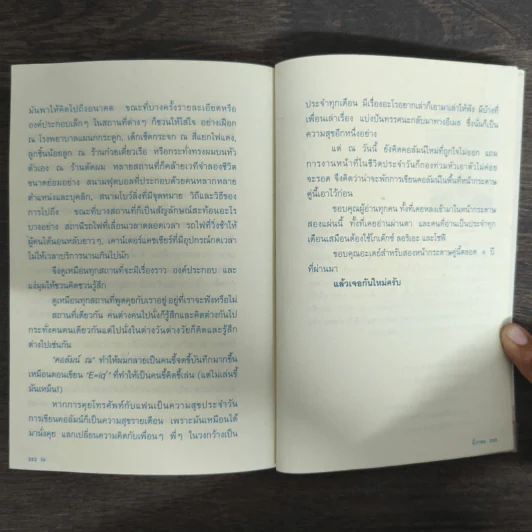 มันพาให้คิดไปถึงอนาคต ขณะที่บางครั้งรายละเอียดหรือ
องค์ประกอบเล็กๆ ในสถานที่ต่างๆ ก็ชวนให้ใส่ใจ อย่างเฝือก
ณ โรงพยาบาลแผนกกระดูก, เด็กเช็ดกระจก ณ สี่แยกไฟแดง,
ลูกชิ้นน้อยลูก ณ ร้านก๋วยเตี๋ยวเรือ หรือกระทั่งทรงผมบนหัว
ตัวเอง ณ ร้านตัดผม หลายสถานที่ก็คล้ายเวทีจำลองชีวิต
ขนาดย่อมอย่าง สนามฟุตบอลที่ประกอบด้วยคนหลากหลาย
ตำแหน่งและบุคลิก, สนามโบว์ลิ่งที่มีจุดหมาย วิถีและวิธีของ
การไปถึง ขณะที่บางสถานที่ก็เป็นสัญลักษณ์สะท้อนอะไร
บางอย่าง สถานีรถไฟที่เลื่อนเวลาตลอดเวลา รถไฟที่วิ่งช้าให้
ผู้คนได้นอนหลับยาวๆ เคาน์เตอร์แคชเชียร์ที่มีอุปกรณ์กดเวลา
ไม่ให้เราบริการนานเกินไปนัก
จึงดูเหมือนทุกสถานที่จะมีเรื่องราว องค์ประกอบ และ
แง่มุมให้ชวนคิดชวนรู้สึก
ดูเหมือนทุกสถานที่พูดคุยกับเราอยู่ อยู่ที่เราจะฟังหรือไม่
สถานที่เดียวกัน คนต่างคนไปนั่งก็รู้สึกและคิดต่างกันไป
กระทั่งคนคนเดียวกันแต่ไปนั่งในต่างวันต่างวัยก็คิดและรู้สึก
ต่างไปเช่นกัน
'คอลัมน์ ณ' ทำให้ผมกลายเป็นคนขี้จดขี้บันทึกมากขึ้น
เหมือนตอนเขียน 'E=iq²' ที่ทำให้เป็นคนขี้คิดขี้เล่น (แต่ไม่เล่นขี้
มันเหม็น!)
หากการคุยโทรศัพท์กับแฟนเป็นความสุขประจำวัน
การเขียนคอลัมน์ก็เป็นความสุขรายเดือน เพราะมันเหมือนได้
มานั่งคุย แลกเปลี่ยนความคิดกับเพื่อนๆ พี่ๆ ในวงกว้างเป็น
ประจำทุกเดือน มีเรื่องอะไรอยากเล่าก็เอามาเล่าให้ฟัง มีบ้างที่
เพื่อนเล่าเรื่อง แบ่งปันทรรศนะกลับมาทางอีเมล ซึ่งนั่นก็เป็น
ความสุขอีกหนึ่งอย่าง
แต่ ณ วันนี้ ยังคิดคอลัมน์ใหม่ที่ถูกใจไม่ออก แถม
การงานหน้าที่ในชีวิตประจำวันก็กองท่วมหัวเอาตัวไม่ค่อย
จะรอด จึงคิดว่าน่าจะพักการเขียนคอลัมน์ในพื้นที่หน้ากระดาษ
คู่นี้เอาไว้ก่อน
ขอบคุณผู้อ่านทุกคน ทั้งที่เคยหลงเข้ามาในหน้ากระดาษ
สองแผ่นนี้ ทั้งที่เคยอ่านผ่านตา และคนที่อ่านเป็นประจำทุก
เดือนเสมือนต้องใช้โกเต็กซ์ ลอริเอะ และโซฟี
ขอบคุณอะเดย์สำหรับสองหน้ากระดาษคู่นี้ตลอด ๓ ปี
ที่ผ่านมา
แล้วเจอกันใหม่ครับ